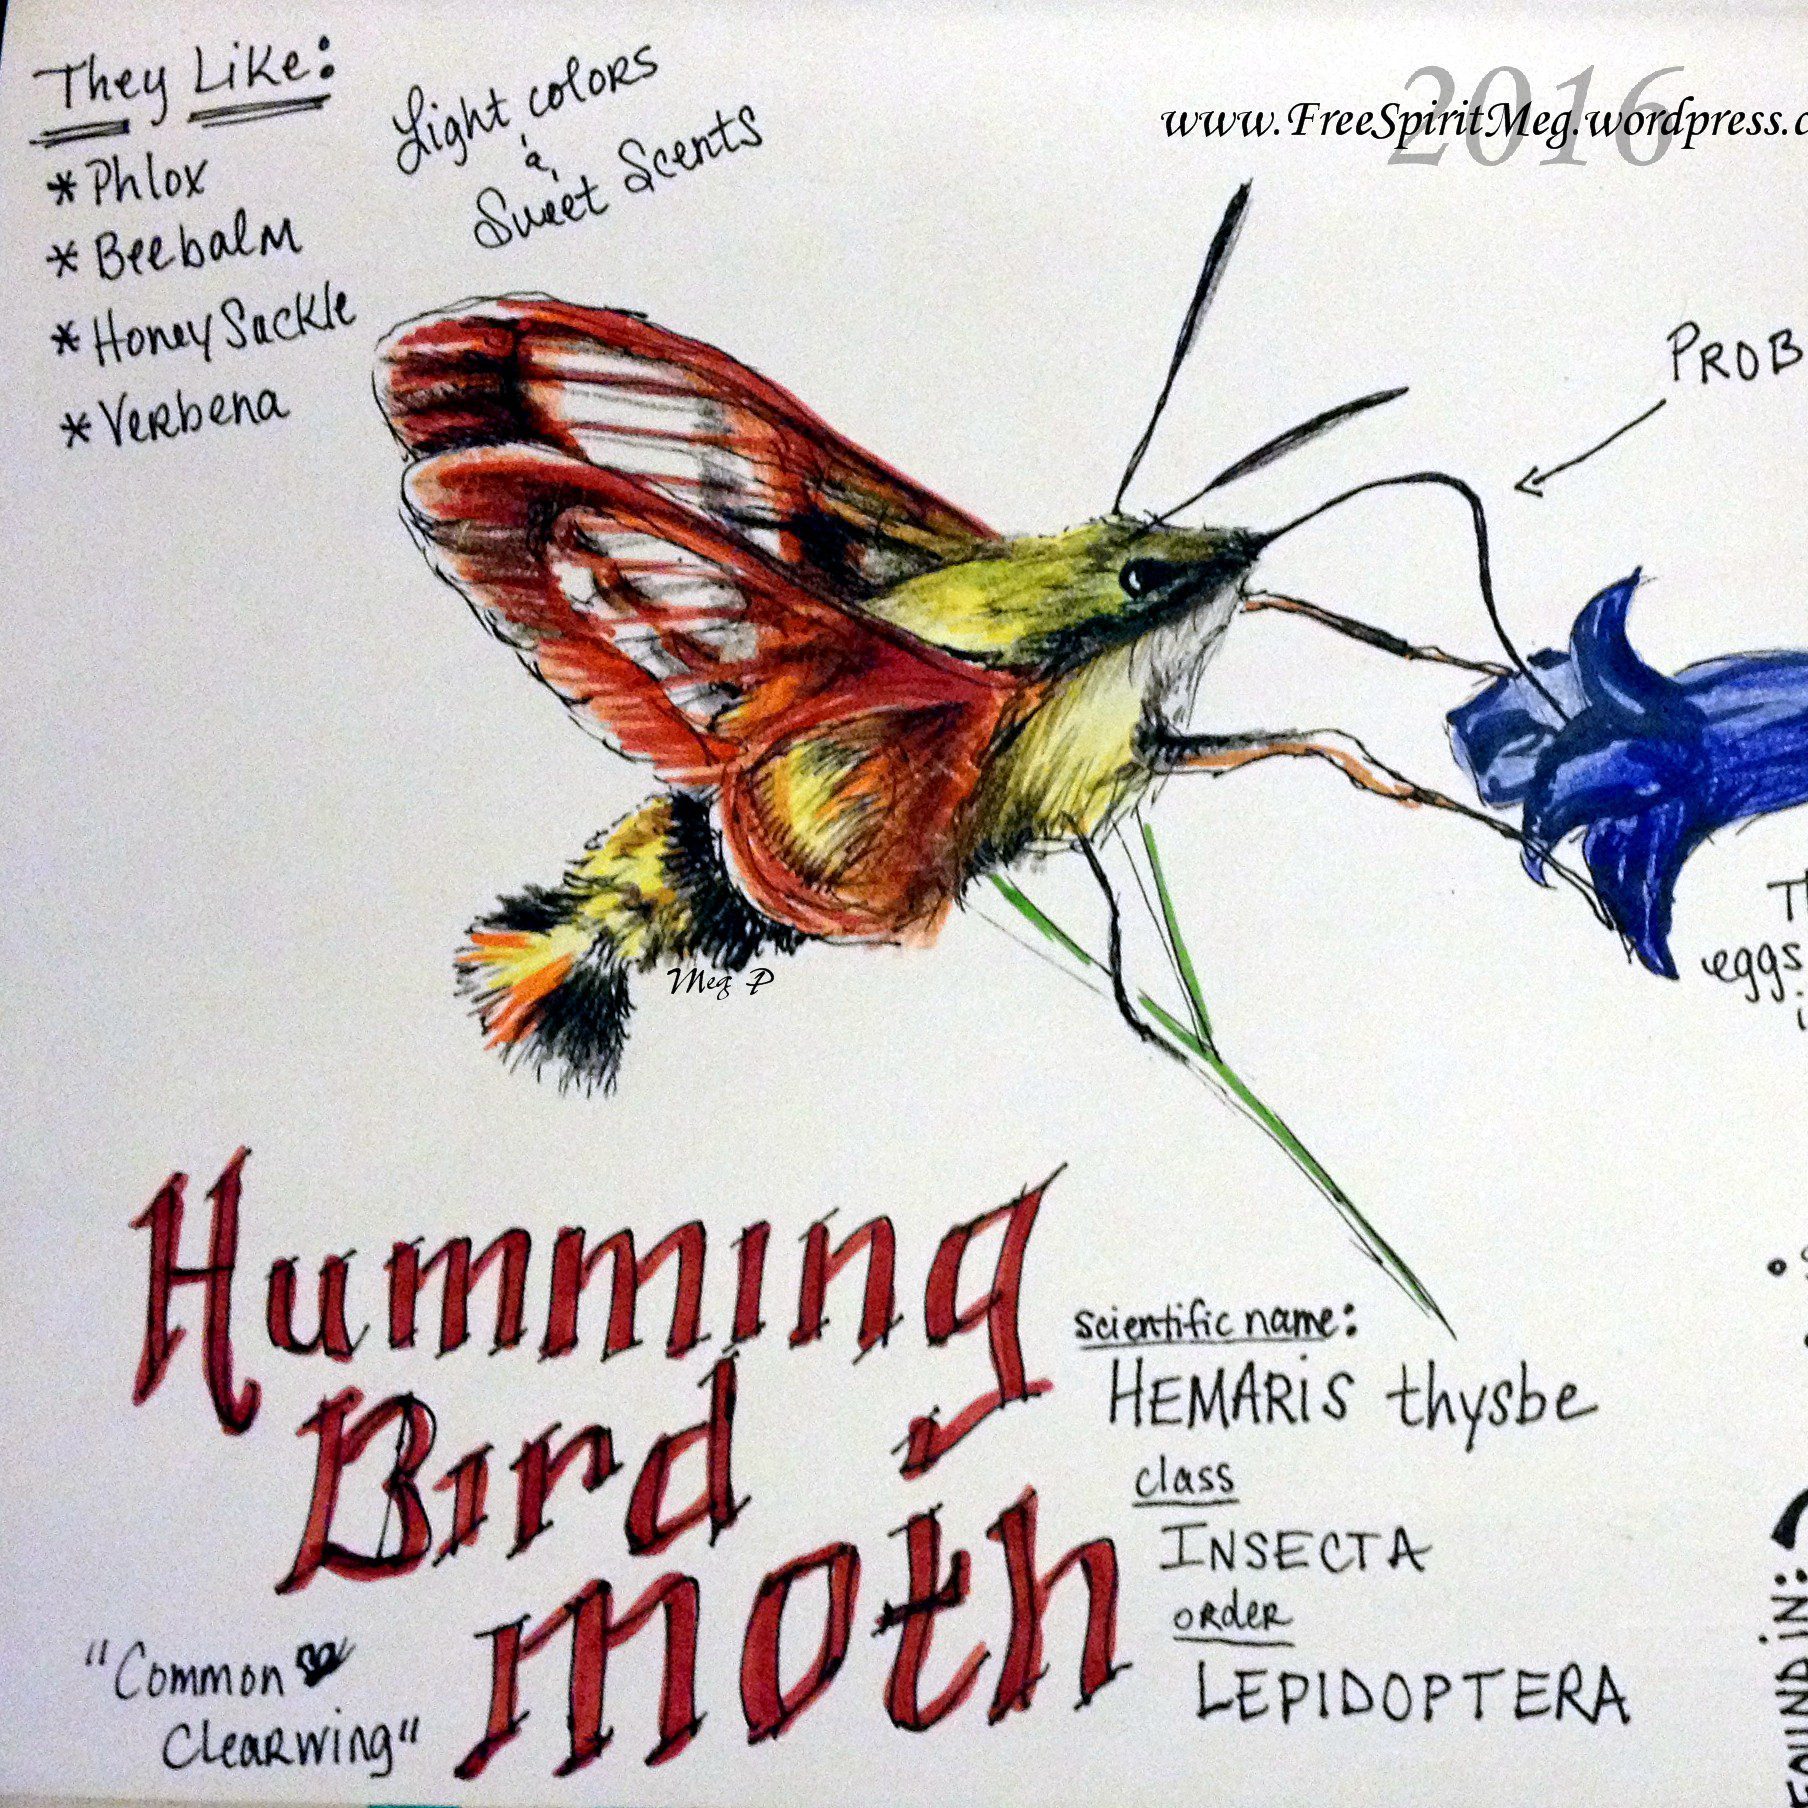 They Like:
* Phlox
* Beebalm
* Honey Suckle
* Verbena
Light colors
&
Sweet Scents
2016
www.FreeSpiritMeg.wordpress.c
PROB
eggs
Meg P
Humming
Bird
moth
"Common
Clearwing"
scientific name:
HEMARIS thysbe
class
INSECTA
order
LEPIDOPTERA
FOUND IN: